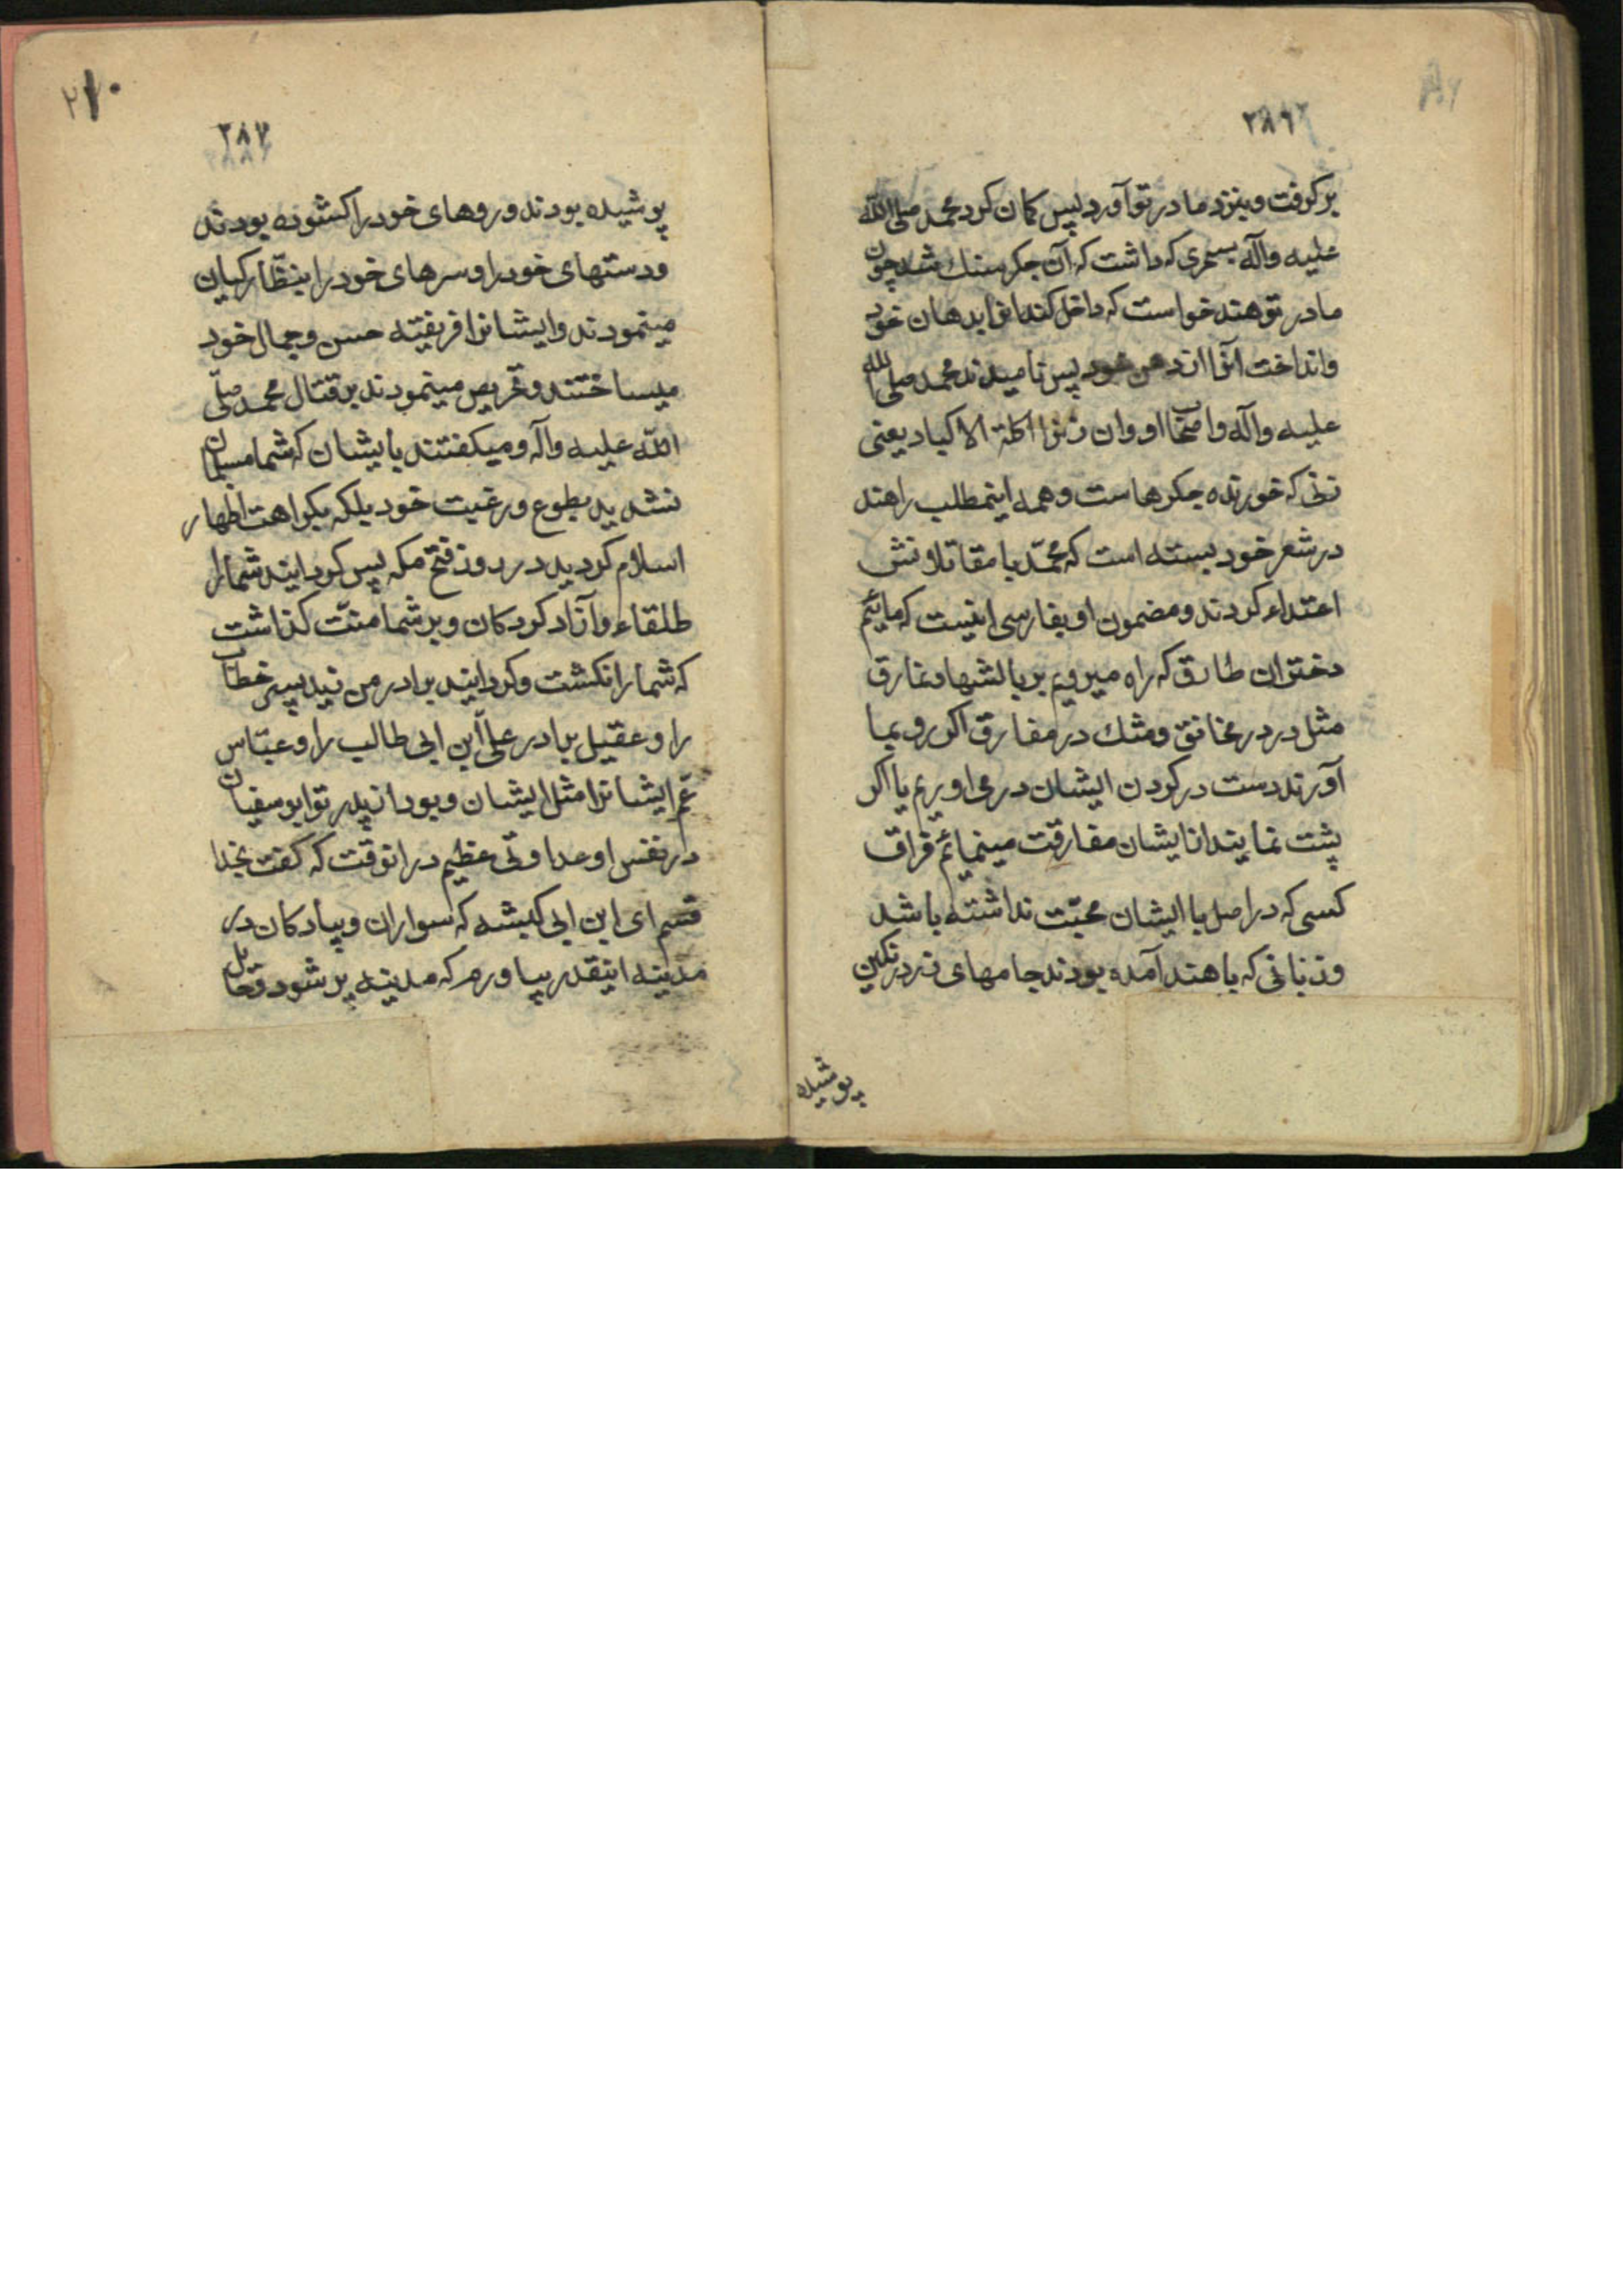 ۲۸۶
بر کرفت وبنزد مادر تو آورد پس کمان کرد محمد صلی الله
علیه وآله بسحری که داشت که آن جکر سنك شد چون
مادر تو هند خواست که داخل کند انرا بدهان خود
وانداخت انرا از دهن خود پس نامیدند محمد صلی الله
علیه وآله واصحاب او وان زنرا آکلة الاکباد یعنی
زنی که خورنده جکرهاست وهمه اینمطلب را هند
در شعر خود بسته است که محمّد با مقاتلاونش
اعتداء کردند ومضمون او بفارسی اینست که مائیم
دختران طارق که راه میرویم بر بالشها ونمارق
مثل در در مخانق ومشك در مفارق اکر رو بما
آورند دست در کردن ایشان درمی اوریم یا اکر
پشت نمایند از ایشان مفارقت مینمائم فراق
کسی که در اصل با ایشان محبّت نداشته باشد
وزنانی که با هند آمده بودند جامهای زرد رنکین
پوشیده
۲۱۰
۲۸۷
پوشیده بودند وروهای خود را کشوده بودند
ودستهای خود را وسرهای خود را بنظّارکیان
مینمودند وایشانرا فریفته حسن وجمال خود
میساختند وتحریص مینمودند بر قتال محمد صلّی
الله علیه وآله ومیکفتند بایشان که شما مسلمان
نشدید بطوع ورغبت خود بلکه بکراهت اظهار
اسلام کردید در روز فتح مکه پس کردانید شما را
طلقاء وآزاد کردکان وبر شما منّت کذاشت
که شما را نکشت وکردانید برادر من زید پسر خطاب
را وعقیل برادر علیّ ابن ابی طالب را وعبّاس
عّم ایشانرا مثل ایشان وبود از پدر تو ابو سفیان
در نفس او عداوتی عظیم در انوقت که کفت بخدا
قسم ای ابن ابی کبشه که سواران وپیادکان در
مدینه اینقدر بیاورم که مدینه پر شود